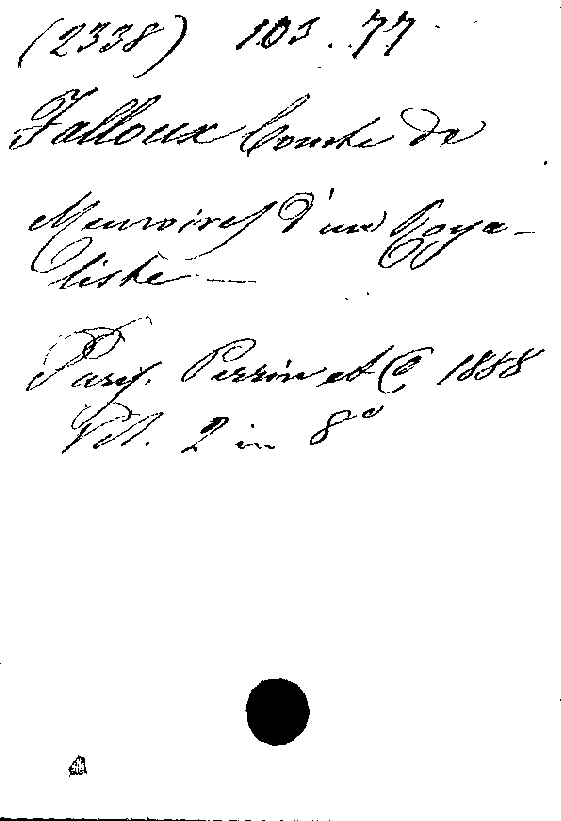 (2338) 103. 77
Falloux Comte de
Memoires d'un Roya-
liste —
Paris. Perrin et C° 1888
Vol. 2 in 8°